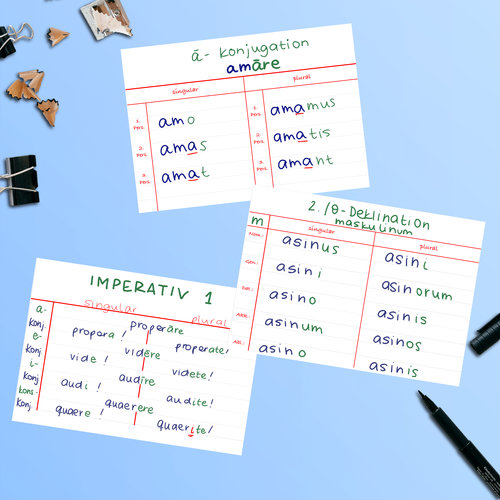 ā- Konjugation
amāre
singular plural
1. Pers. amo amamus
2. Pers. amas amatis
3. Pers. amat amant
2./θ-Deklination
maskulinum
m singular plural
Nom. asinus asini
Gen. asini asinorum
Dat. asino asinis
Akk. asinum asinos
asino asinis
IMPERATIV 1
singular plural
ā- Konj. propera! properāre properate!
e- Konj vide! vidēre videte!
i- Konj audi! audīre audite!
kons- Konj quaere! quaerere quaerite!